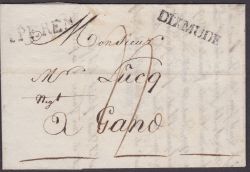 YPEREN
DIXMUDE
Monsieur
Mr Lucq
Negt
à Gand